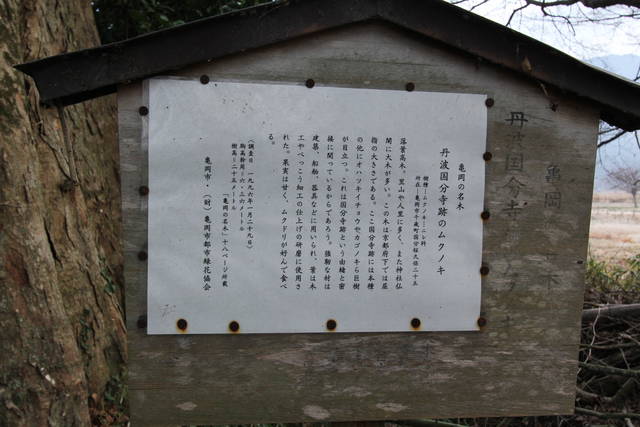 亀岡の名木
丹波国分寺跡のムクノキ
樹種―ムクノキ・ニレ科
所在―亀岡市千歳町国分桜久保二十五
落葉高木。里山や人里に多く、また神社仏
閣に大木が多い。この木は京都府下では屈
指の大きさである。ここ国分寺跡には本種
の他にオハツキイチョウやカゴノキら巨樹
が目立つ。これは国分寺跡という由緒と密
接に関っているからであろう。強靱な材は
建築、船舶、器具などに用いられ、葉は木
工やべっこう細工の仕上げの研磨に使用さ
れた。果実は甘く、ムクドリが好んで食べ
る。
(調査日―一九九六年一月二十九日)
胸高幹周―六・三六メートル
樹高―二十五メートル
「亀岡の名木」十八ページ所載
亀岡市・(財)亀岡市都市緑花協会
亀岡 木
丹波国分寺